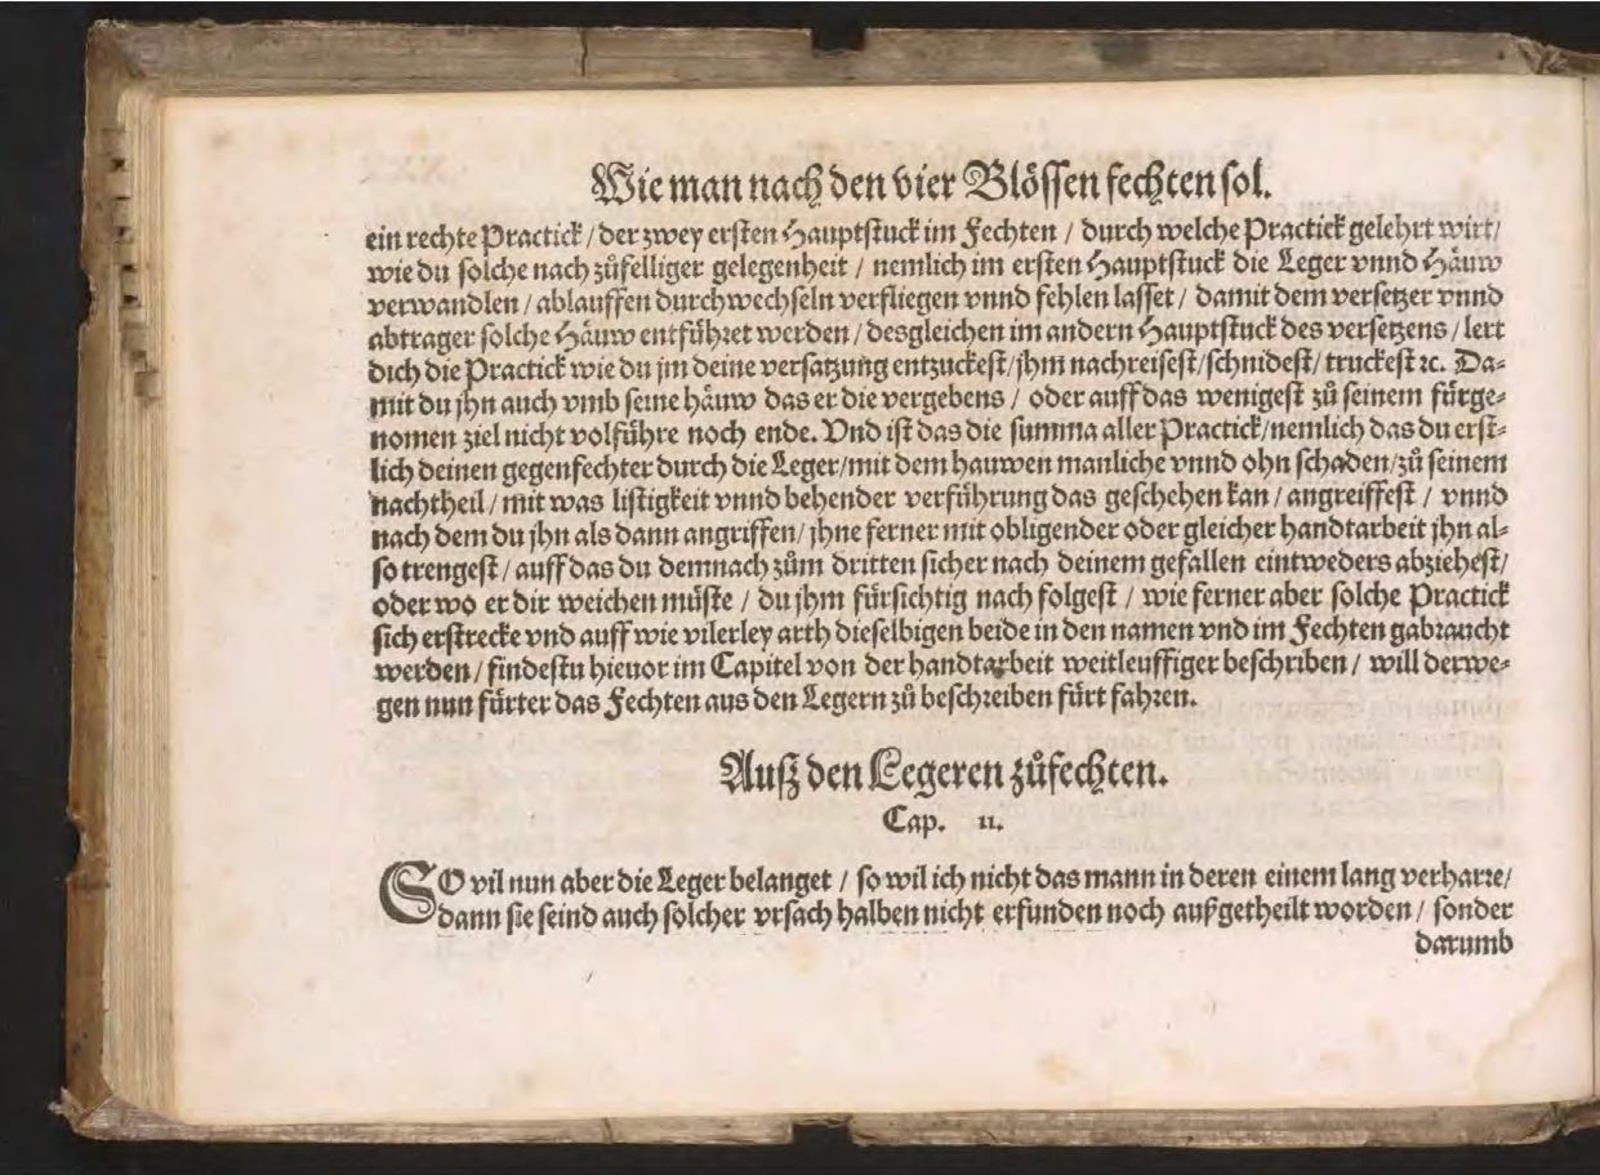 Wie man nach den vier Blössen fechten sol.
ein rechte Practick / der zwey ersten Hauptstuck im Fechten / durch welche Practick gelehrt wirt /
wie du solche nach zůfelliger gelegenheit / nemlich im ersten Hauptstuck die Leger vnnd Häuw
verwandlen / ablauffen durchwechseln verfliegen vnnd fehlen lasset / damit dem versetzer vnnd
abtrager solche Häuw entführet werden / desgleichen im andern Hauptstuck des versetzens / lert
dich die Practick wie du jm deine versatzung entzuckest / jhm nachreisest / schnidest / truckest ꝛc. Da⸗
mit du jhn auch vmb seine häuw das er die vergebens / oder auff das wenigest zů seinem fürge⸗
nomen ziel nicht volführe noch ende. Vnd ist das die summa aller Practick / nemlich das du erst⸗
lich deinen gegenfechter durch die Leger / mit dem hauwen manliche vnnd ohn schaden / zů seinem
nachtheil / mit was listigkeit vnnd behender verführung das geschehen kan / angreiffest / vnnd
nach dem du jhn als dann angriffen / jhne ferner mit obligender oder gleicher handtarbeit jhn al⸗
so trengest / auff das du demnach zům dritten sicher nach deinem gefallen eintweders abziehest /
oder wo er dir weichen müste / du jhm fürsichtig nach folgest / wie ferner aber solche Practick
sich erstrecke vnd auff wie vilerley arth dieselbigen beide in den namen vnd im Fechten gabraucht
werden / findestu hieuor im Capitel von der handtarbeit weitleuffiger beschriben / will derwe⸗
gen nun fürter das Fechten aus den Legern zů beschreiben fürt fahren.
Außz den Legeren zůfechten.
Cap. 11.
SO vil nun aber die Leger belanget / so wil ich nicht das mann in deren einem lang verharre /
dann sie seind auch solcher vrsach halben nicht erfunden noch außgetheilt worden / sonder
darumb